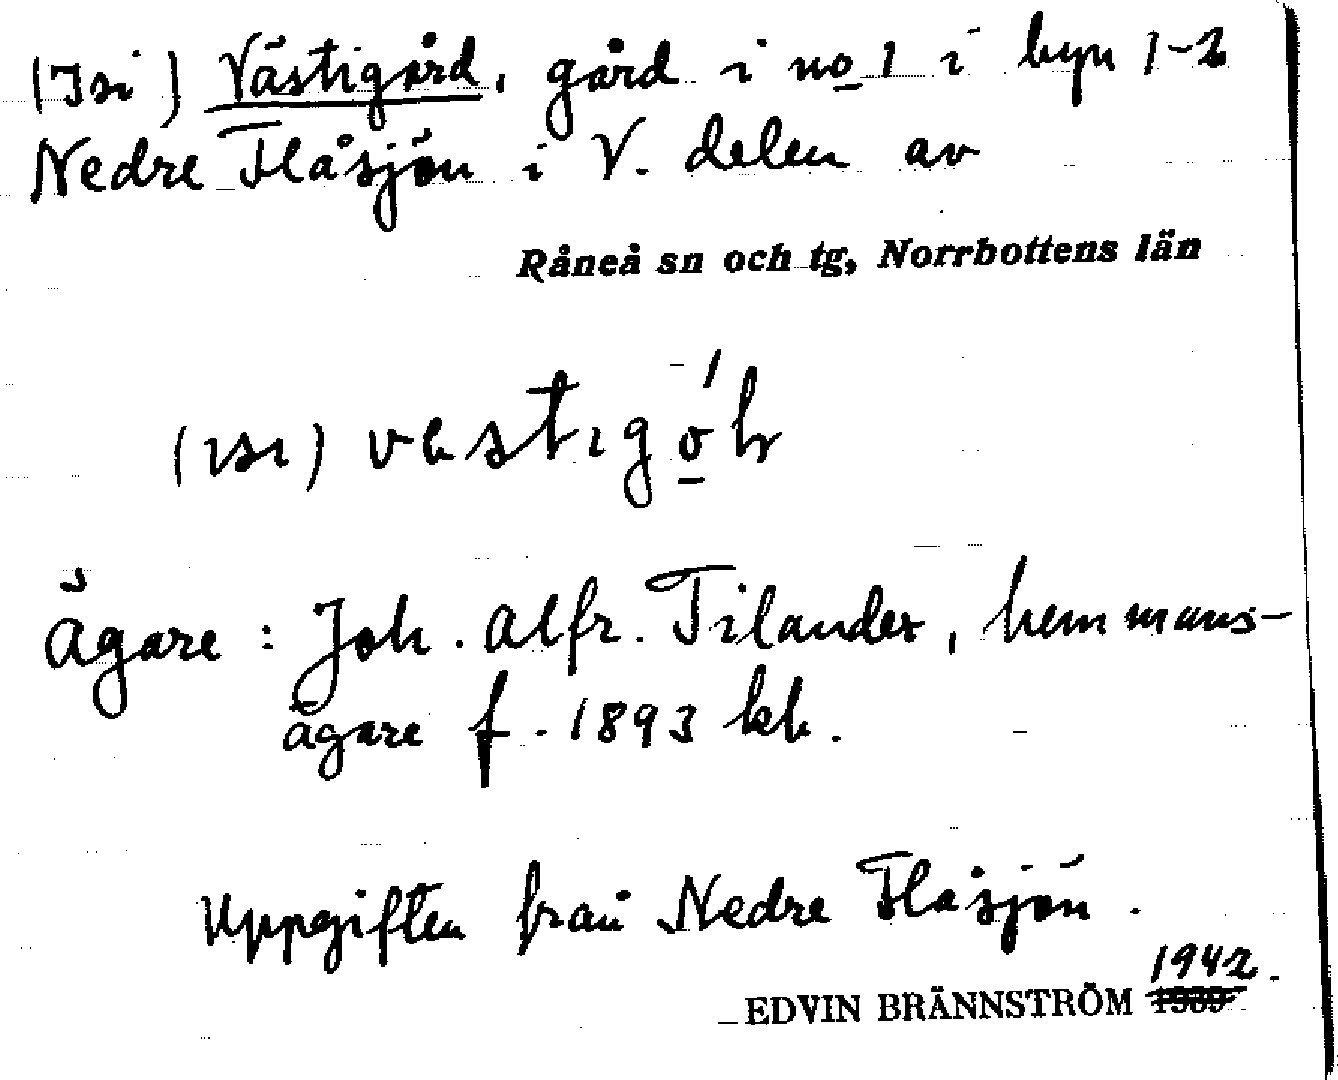 (Isi) Västigård, gård i no 1 i byn 1-2
Nedre Flåsjön i V. delen av
Råneå sn och tg, Norrbottens län
(ısı) vestıgo̲´h
Ägare: Joh. Alfr. Tilander, hemmans-
ägare f. 1893 kh.
Uppgiften från Nedre Flåsjön.
1942.
EDVIN BRÄNNSTRÖM 1939